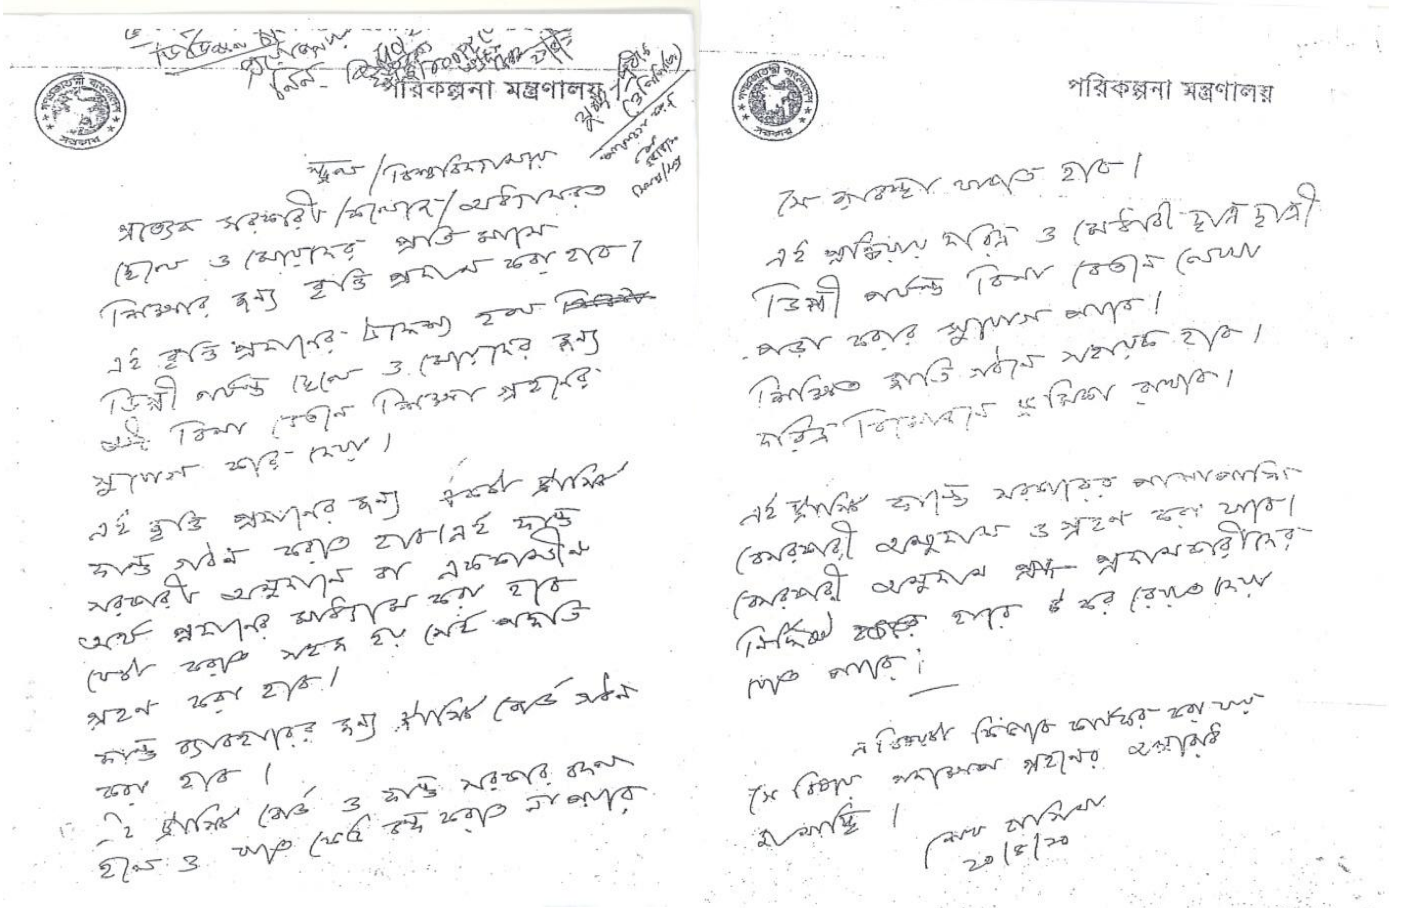 পরিকল্পনা মন্ত্রণালয়
গণপ্রজাতন্ত্রী বাংলাদেশ
সরকার
স্কুল/বিশ্ববিদ্যালয়
প্রত্যেক সরকারী/কলেজ/অধ্যয়নরত
ছেলে ও মেয়েদের প্রতি মাসে
শিক্ষার জন্য বৃত্তি প্রদান করা হবে।
এই বৃত্তি প্রদানের উদ্দেশ্য হল
ডিগ্রী পর্যন্ত ছেলে ও মেয়েদের জন্য
বিনা বেতনে শিক্ষা গ্রহনের
সুযোগ করে দেয়া।
এই বৃত্তি প্রদানের জন্য একটা ট্রাস্টি
ফান্ড গঠন করতে হবে। এই ফান্ড
সরকারী অনুদানে বা এককালীন
অর্থ প্রদানের মাধ্যমে করা হবে
যেটা করতে সহজ হয় সেই পদ্ধতি
গ্রহণ করা হবে।
ফান্ড ব্যবহারের জন্য ট্রাস্টি বোর্ড গঠন
করা হবে।
এই ট্রাস্টি বোর্ড ও ফান্ড সরকার বদল
হলে ও যাতে কেউ বন্ধ করতে না পারে
পরিকল্পনা মন্ত্রণালয়
গণপ্রজাতন্ত্রী বাংলাদেশ
সরকার
সে ব্যবস্থা থাকতে হবে।
এই প্রক্রিয়ায় দরিদ্র ও মেধাবী ছাত্র ছাত্রী
ডিগ্রী পর্যন্ত বিনা বেতনে লেখা
পড়া করার সুযোগ পাবে।
শিক্ষিত জাতি গঠনে সহায়ক হবে।
দারিদ্র বিমোচনে ভূমিকা রাখবে।
এই ট্রাস্টি ফান্ডে সরকারের পাশাপাশি
বেসরকারী অনুদান ও গ্রহণ করা যাবে।
বেসরকারী অনুদান প্রদানকারীদের
নির্দিষ্ট হারে কর রেয়াত দেয়া
যেতে পারে।
এ বিষয়টা কিভাবে কার্যকর করা যায়
সে বিষয়ে পদক্ষেপ গ্রহনের অনুরোধ
জানাচ্ছি।
শেখ হাসিনা
২০/৪/১০